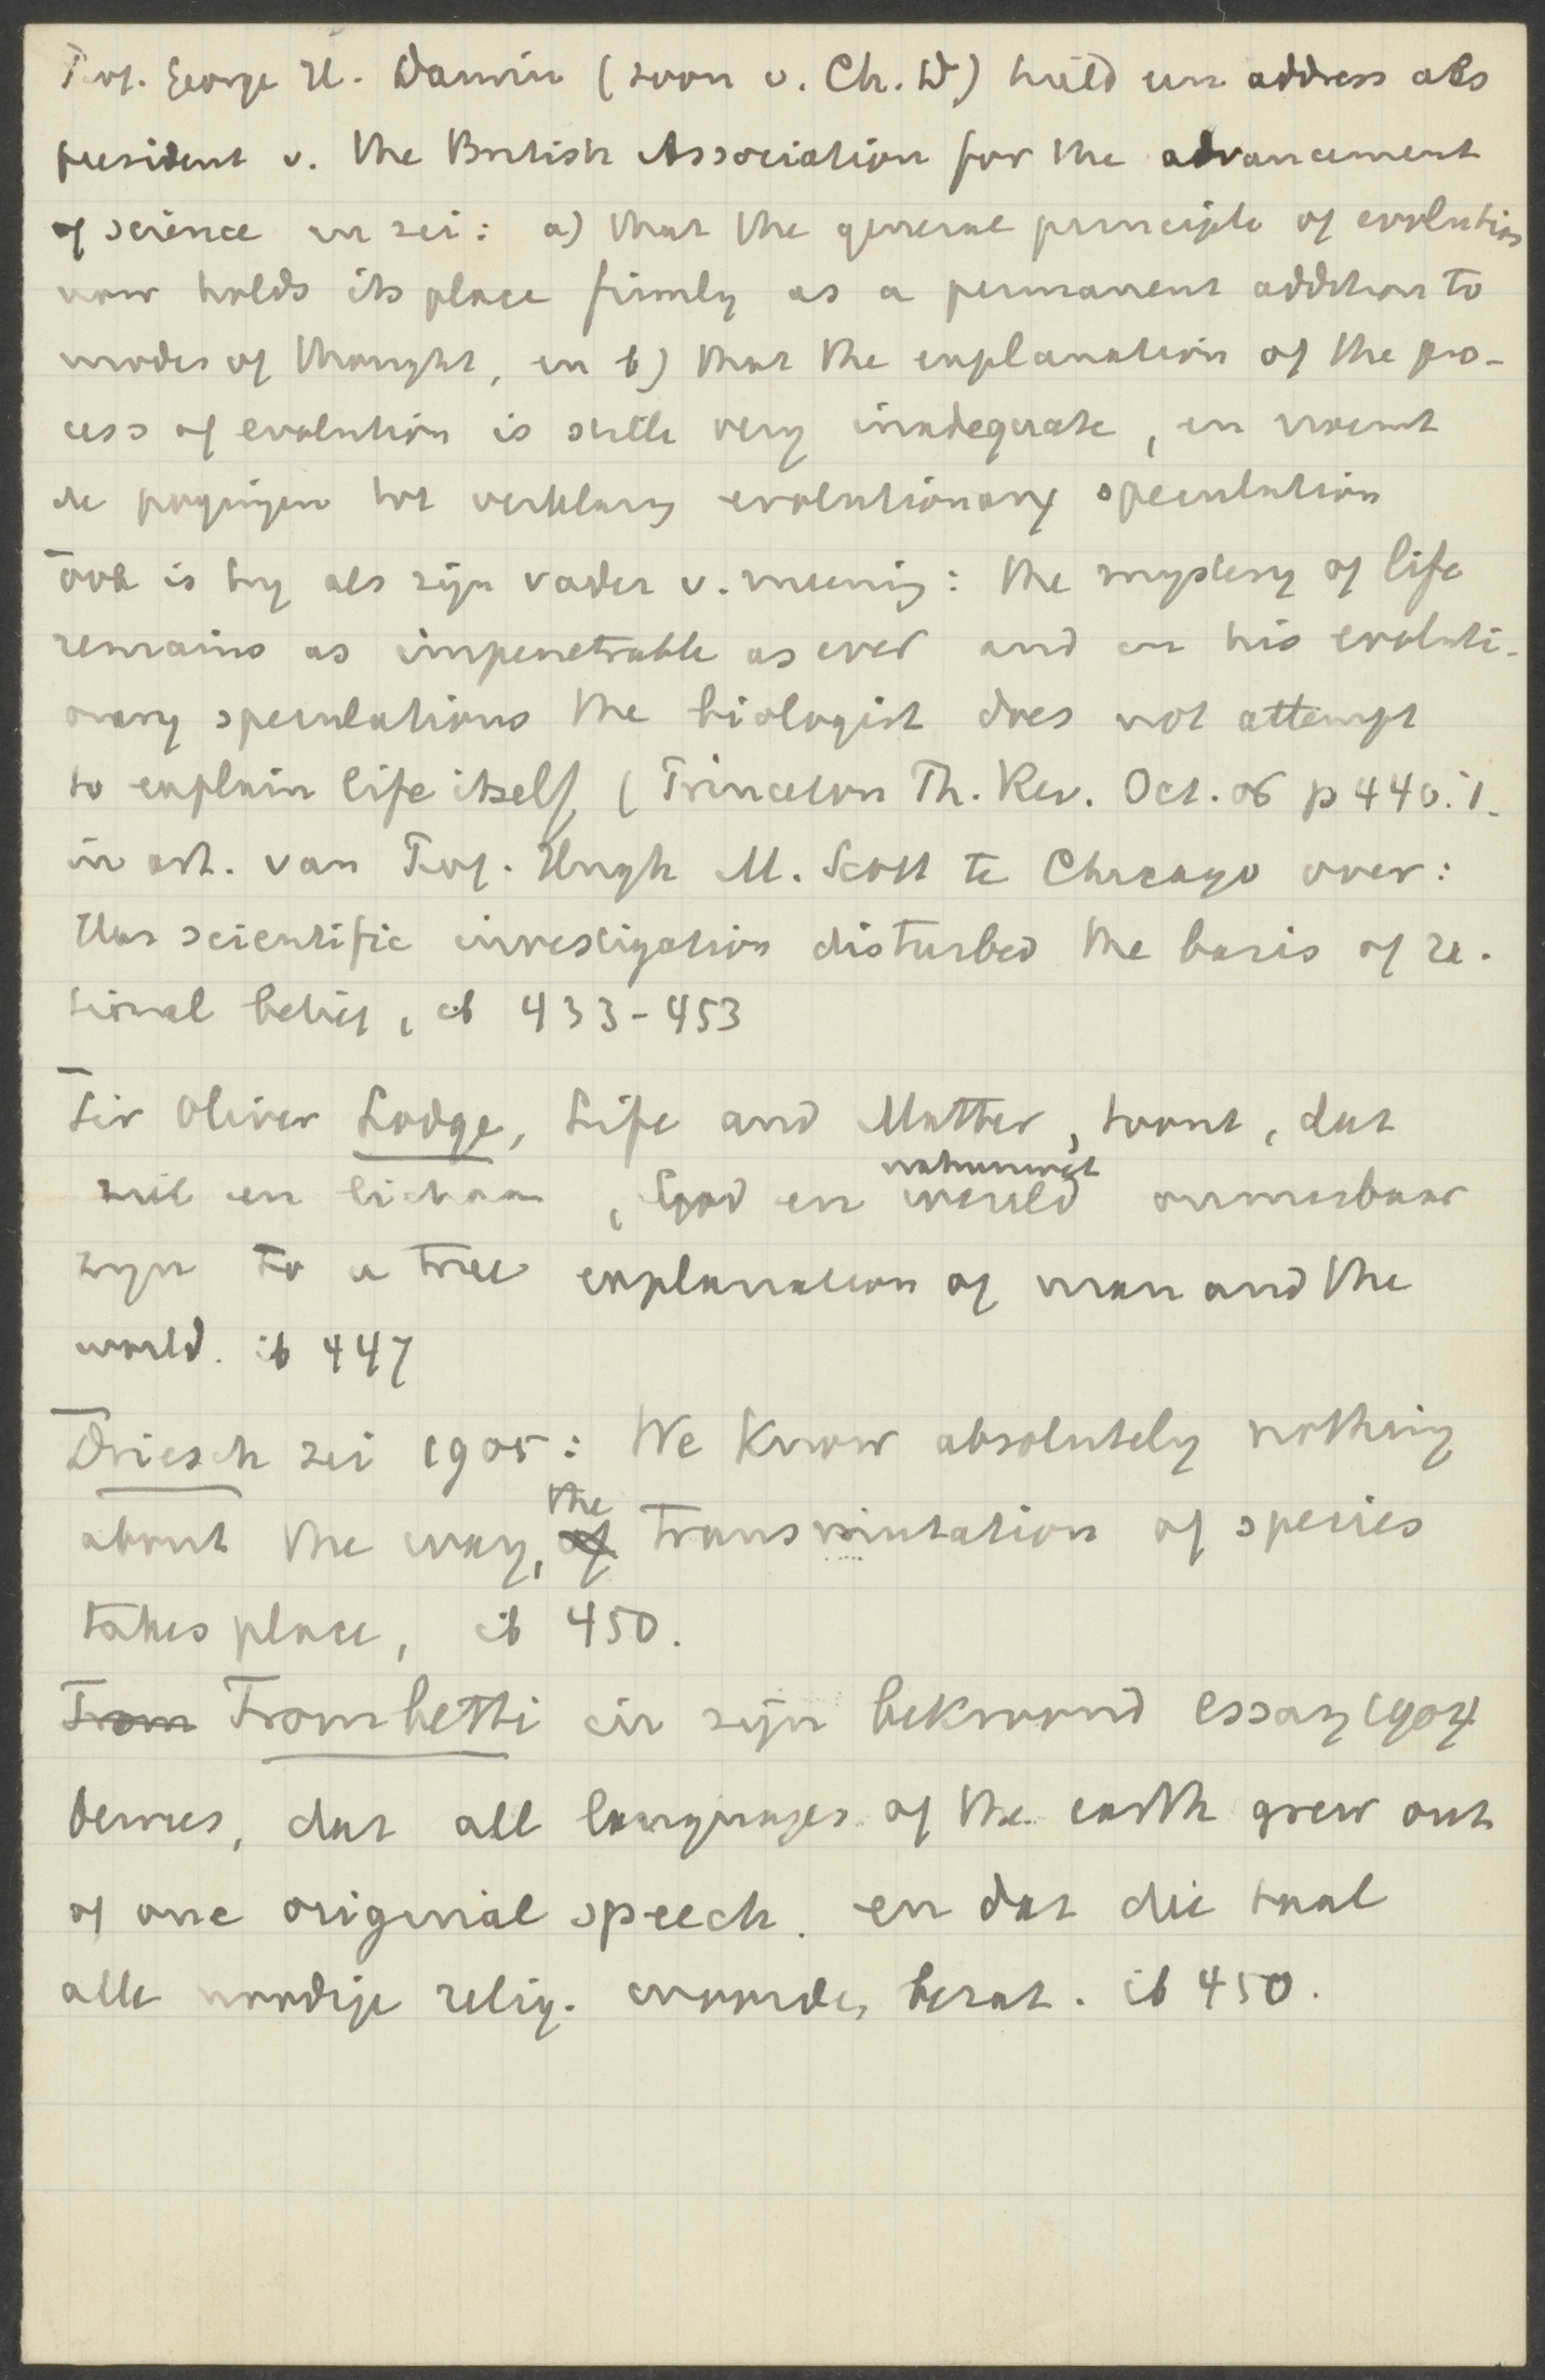 Prof. George H. Darwin (zoon v. Ch. D) hield een address als
president v. the British Association for the advancement
of science en zei: a) that the general principle of evolution
now holds its place firmly as a permanent addition to
modes of thought, en b) that the explanation of the pro-
cess of evolution is still very inadequate, en noemt
de pogingen tot verklaring evolutionary speculation
Ook is hy als zijn vader v. meening: the mystery of life
remains as impenetrable as ever and in his evoluti-
onary speculations the biologist does not attempt
to explain life itself, (Princeton Th. Rev. Oct. 06 p 440. i.
in art. van Prof. Hugh M. Scott te Chicago over:
Has scientific investigation disturbed the basis of ra-
tional belief, ib 433-453
Sir Oliver Lodge, Life and Matter, toont, dat
natuurwet
ziel en lichaam, God en wereld onmisbaar
zyn to a true explanation of man and the
world. ib 447
Driesch zei 1905: We know absolutely nothing
the
about the way, of transmutation of species
takes place, ib 450.
Trom Trombetti in zijn bekroond essay 1904
bewees, dat all languages of the earth grew out
of one original speech. en dat die taal
alle noodige relig. woorden bezat. ib 450.